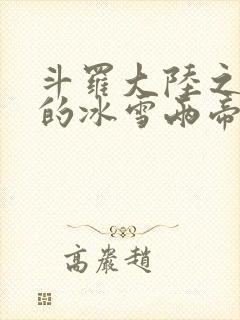 斗羅大陸之
的冰雪兩帝
高嚴趙